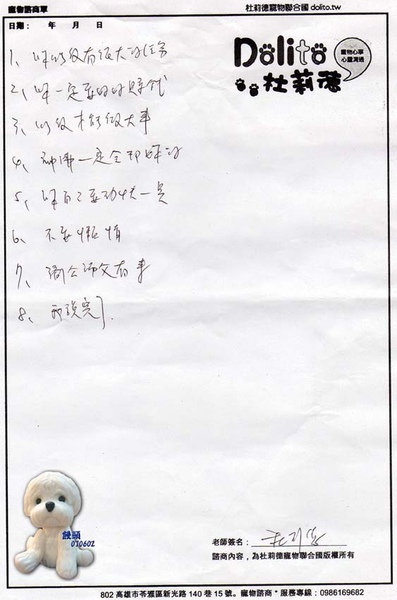 寵物諮商單
杜莉德寵物聯合國 dolito.tw
日期： 年 月 日
Dolito
杜莉德
寵物心事
心靈溝通
1、 以後有很大的
2、 一定要好好
3、以後才能做大事
4、 神佛一定會
5、 自己要加快一點
6、不要懶惰
7、 濟公師父有事
8、我說完了.
饅頭
070602
老師簽名：
諮商內容，為杜莉德寵物聯合國版權所有
802 高雄市苓雅區新光路 140 巷 15 號。寵物諮商＊服務專線：0986169682